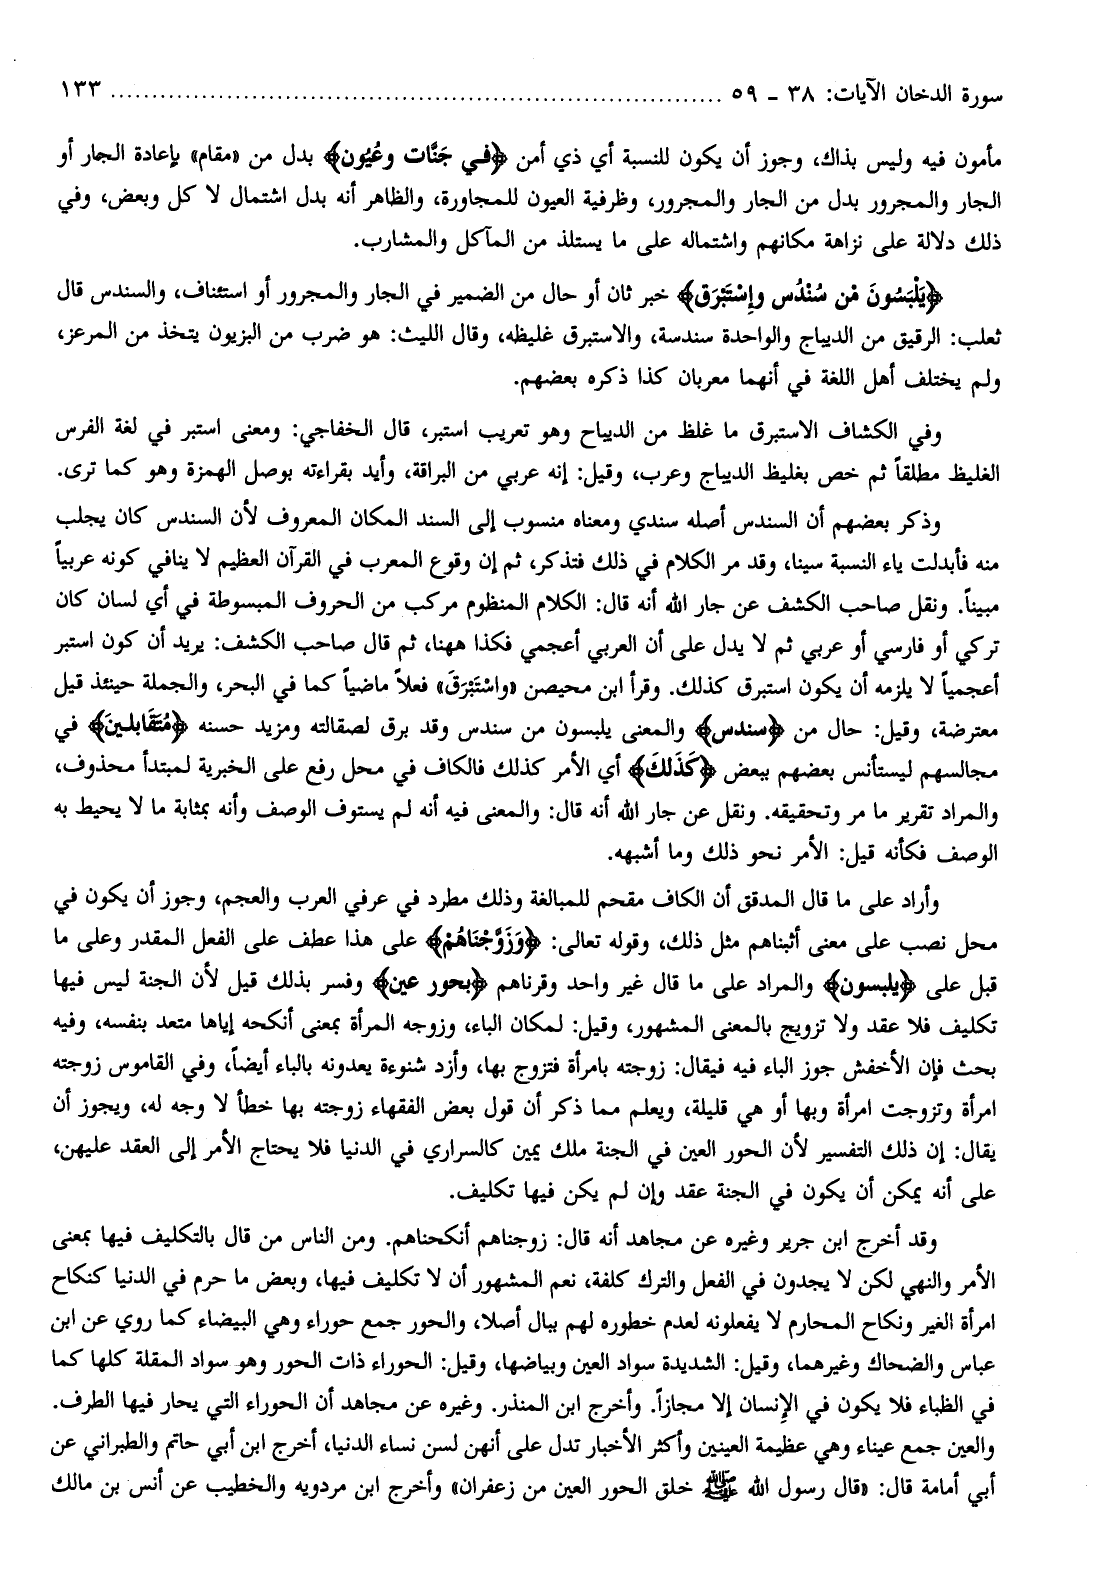 سورة الدخان الآيات: ٣٨ - ٥٩ ........................................................................... ١٣٣
مأمون فيه وليس بذاك، وجوز أن يكون للنسبة أي ذي أمن ﴿في جَنَّات وعُيُون﴾ بدل من «مقام» بإعادة الجار أو
الجار والمجرور بدل من الجار والمجرور، وظرفية العيون للمجاورة، والظاهر أنه بدل اشتمال لا كل وبعض، وفي
ذلك دلالة على نزاهة مكانهم واشتماله على ما يستلذ من المآكل والمشارب.
﴿يَلْبَسُونَ مْن سُنْدُس وإِسْتَبْرَق﴾ خبر ثان أو حال من الضمير في الجار والمجرور أو استئناف، والسندس قال
ثعلب: الرقيق من الديباج والواحدة سندسة، والاستبرق غليظه، وقال الليث: هو ضرب من البزيون يتخذ من المرعز،
ولم يختلف أهل اللغة في أنهما معربان كذا ذكره بعضهم.
وفي الكشاف الاستبرق ما غلظ من الديباح وهو تعريب استبر، قال الخفاجي: ومعنى استبر في لغة الفرس
الغليظ مطلقاً ثم خص بغليظ الديباج وعرب، وقيل: إنه عربي من البراقة، وأيد بقراءته بوصل الهمزة وهو كما ترى.
وذكر بعضهم أن السندس أصله سندي ومعناه منسوب إلى السند المكان المعروف لأن السندس كان يجلب
منه فأبدلت ياء النسبة سينا، وقد مر الكلام في ذلك فتذكر، ثم إن وقوع المعرب في القرآن العظيم لا ينافي كونه عربياً
مبيناً. ونقل صاحب الكشف عن جار الله أنه قال: الكلام المنظوم مركب من الحروف المبسوطة في أي لسان كان
تركي أو فارسي أو عربي ثم لا يدل على أن العربي أعجمي فكذا ههنا، ثم قال صاحب الكشف: يريد أن كون استبر
أعجمياً لا يلزمه أن يكون استبرق كذلك. وقرأ ابن محيصن «واسْتَبْرَقَ» فعلاً ماضياً كما في البحر، والجملة حينئذ قيل
معترضة، وقيل: حال من ﴿سندس﴾ والمعنى يلبسون من سندس وقد برق لصقالته ومزيد حسنه ﴿مُتَقَابلينَ﴾ في
مجالسهم ليستأنس بعضهم ببعض ﴿كَذَلكَ﴾ أي الأمر كذلك فالكاف في محل رفع على الخبرية لمبتدأ محذوف،
والمراد تقرير ما مر وتحقيقه. ونقل عن جار الله أنه قال: والمعنى فيه أنه لم يستوف الوصف وأنه بمثابة ما لا يحيط به
الوصف فكأنه قيل: الأمر نحو ذلك وما أشبهه.
وأراد على ما قال المدقق أن الكاف مقحم للمبالغة وذلك مطرد في عرفي العرب والعجم، وجوز أن يكون في
محل نصب على معنى أثبناهم مثل ذلك، وقوله تعالى: ﴿وَزَوَّجْنَاهُمْ﴾ على هذا عطف على الفعل المقدر وعلى ما
قبل على ﴿يلبسون﴾ والمراد على ما قال غير واحد وقرناهم ﴿بحور عين﴾ وفسر بذلك قيل لأن الجنة ليس فيها
تكليف فلا عقد ولا تزويج بالمعنى المشهور، وقيل: لمكان الباء، وزوجه المرأة بمعنى أنكحه إياها متعد بنفسه، وفيه
بحث فإن الأخفش جوز الباء فيه فيقال: زوجته بامرأة فتزوج بها، وأزد شنوءة يعدونه بالباء أيضاً، وفي القاموس زوجته
امرأة وتزوجت امرأة وبها أو هي قليلة، ويعلم مما ذكر أن قول بعض الفقهاء زوجته بها خطأ لا وجه له، ويجوز أن
يقال: إن ذلك التفسير لأن الحور العين في الجنة ملك يمين كالسراري في الدنيا فلا يحتاج الأمر إلى العقد عليهن،
على أنه يمكن أن يكون في الجنة عقد وإن لم يكن فيها تكليف.
وقد أخرج ابن جرير وغيره عن مجاهد أنه قال: زوجناهم أنكحناهم. ومن الناس من قال بالتكليف فيها بمعنى
الأمر والنهي لكن لا يجدون في الفعل والترك كلفة، نعم المشهور أن لا تكليف فيها، وبعض ما حرم في الدنيا كنكاح
امرأة الغير ونكاح المحارم لا يفعلونه لعدم خطوره لهم ببال أصلا، والحور جمع حوراء وهي البيضاء كما روي عن ابن
عباس والضحاك وغيرهما، وقيل: الشديدة سواد العين وبياضها، وقيل: الحوراء ذات الحور وهو سواد المقلة كلها كما
في الظباء فلا يكون في الإنسان إلا مجازاً. وأخرج ابن المنذر. وغيره عن مجاهد أن الحوراء التي يحار فيها الطرف.
والعين جمع عيناء وهي عظيمة العينين وأكثر الأخبار تدل على أنهن لسن نساء الدنيا، أخرج ابن أبي حاتم والطبراني عن
أبي أمامة قال: «قال رسول الله ﷺ خلق الحور العين من زعفران» وأخرج ابن مردويه والخطيب عن أنس بن مالك